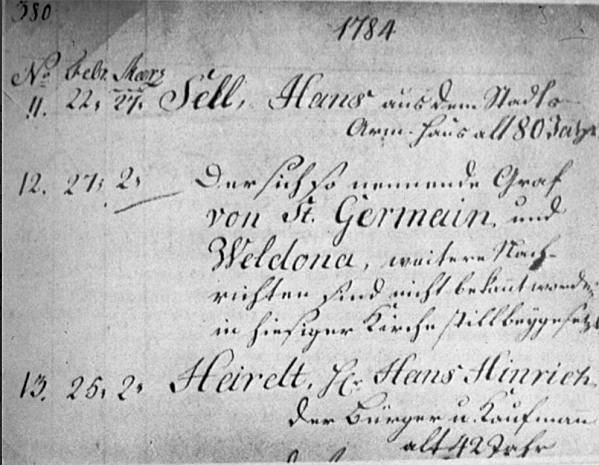 380
1784
No. Febr. Mærz
11. 22. 27. Sell, Hans aus dem Stadts-
Arm-Haus alt 80 Jahr
12. 27. 2. Der sich so nennende Graf
von St. Germain, und
Weldona, weitere Nach-
richten sind nicht bekannt worden,
in hiesiger Kirche still beygesetzt
13. 25. 2. Heirelt, Hr. Hans Hinrich
der Bürger u. Kaufmann
alt 42 Jahr